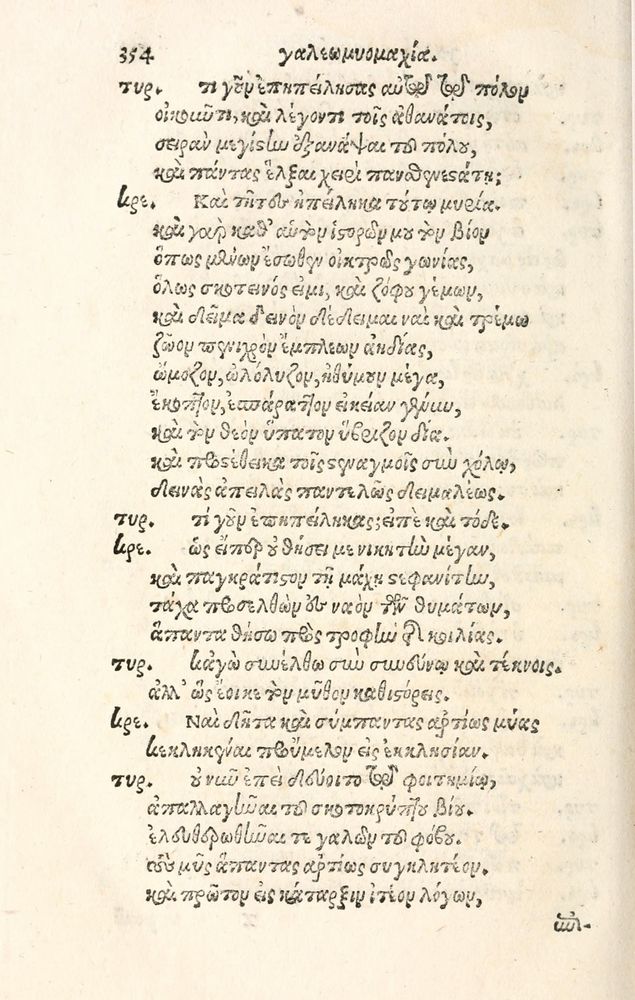 354 γαλεωμυομαχία.
τυρ. τι γοῦν ἐπηπείλησας αὐτῷ τῷ πόλον
οἰκοῦντι, καὶ λέγοντι τοῖς ἀθανάτοις,
σειρὰν μεγίστην ἐξανάψαι τοῦ πόλου,
καὶ πάντας ἕλξαι χειρὶ πανσθενεστάτῃ;
κρε. Καὶ τῆτον ἠπείληκα τούτῳ μυρία.
καὶ γὰρ καθ' αὑτὸν ἱστορῶν μου τὸν βίον
ὅπως μένων ἔσωθεν οἰκτρᾶς γωνίας,
ὅλως σκοτεινός εἰμι, καὶ ζόφου γέμων,
καὶ δεῖμα δεινὸν δέδειμαι ναὶ καὶ τρέμω
ζῶον πνιχρὸν ἔμπλεων ἀηδίας,
ὤμοζον, ὠλόλυζον, ἠθύμουν μέγα,
ἐκοπτον, ἐσπάραττον εἰκείαν γένυν,
καὶ τὸν θεὸν ὕπατον ὕβριζον δία.
καὶ προσέθεικα τοῖς στναγμοῖς σὺν χόλῳ,
δεινὰς ἀπειλὰς παντελῶς δειμαλέως.
τυρ. τί γοῦν ἐπηπείληκας; εἰπὲ καὶ τόδε.
κρε. ὡς εἴπερ οὐ θήσει με νικητὴν μέγαν,
καὶ παγκράτιστον τῇ μάχῃ στεφανίτην,
τάχα προσελθὼν ἐν ναὸν τῶν θυμάτων,
ἅπαντα θήσω πρὸς τροφὴν τῆς κοιλίας.
τυρ. κἀγὼ συνέλθω σὺν συνεύνῳ καὶ τέκνοις.
ἀλλ' ὡς ἔοικε τὸν μῦθον καθιστόρεις.
κρε. Ναὶ δῆτα καὶ σύμπαντας ἀρτίως μύας
κεκληκέναι προὔμελον εἰς ἐκκλησίαν.
τυρ. οὐκοῦν ἐπεὶ δεύροιτο τῷ φροιτημίῳ,
ἀπαλλαγῶναι τοῦ σκοτοκρύπτου βίου.
ἐλευθερωθῶναί τε γαλῶν τοῦ φόβου.
τοὺς μῦς ἅπαντας ἀρτίως συγκλητέον.
καὶ πρῶτον εἰς κάταρξιν ἰτέον λόγων,